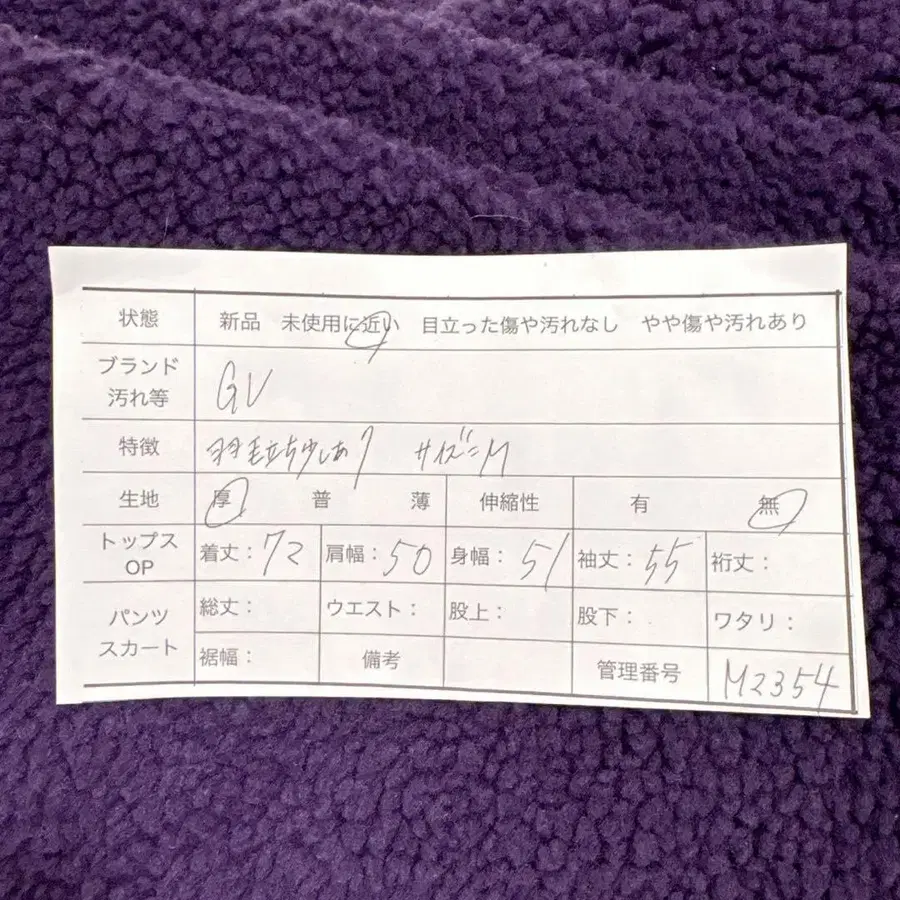 状態 新品 未使用に近い 目立った傷や汚れなし やや傷や汚れあり
ブランド 汚れ等 GV
特徴 羽毛立ち少しあり サイズ=M
生地 厚 普 薄 伸縮性 有 無
トップス OP 着丈:72 肩幅:50 身幅:51 袖丈:55 裄丈:
パンツ スカート 総丈: ウエスト: 股上: 股下: ワタリ:
裾幅: 備考 管理番号 M2354